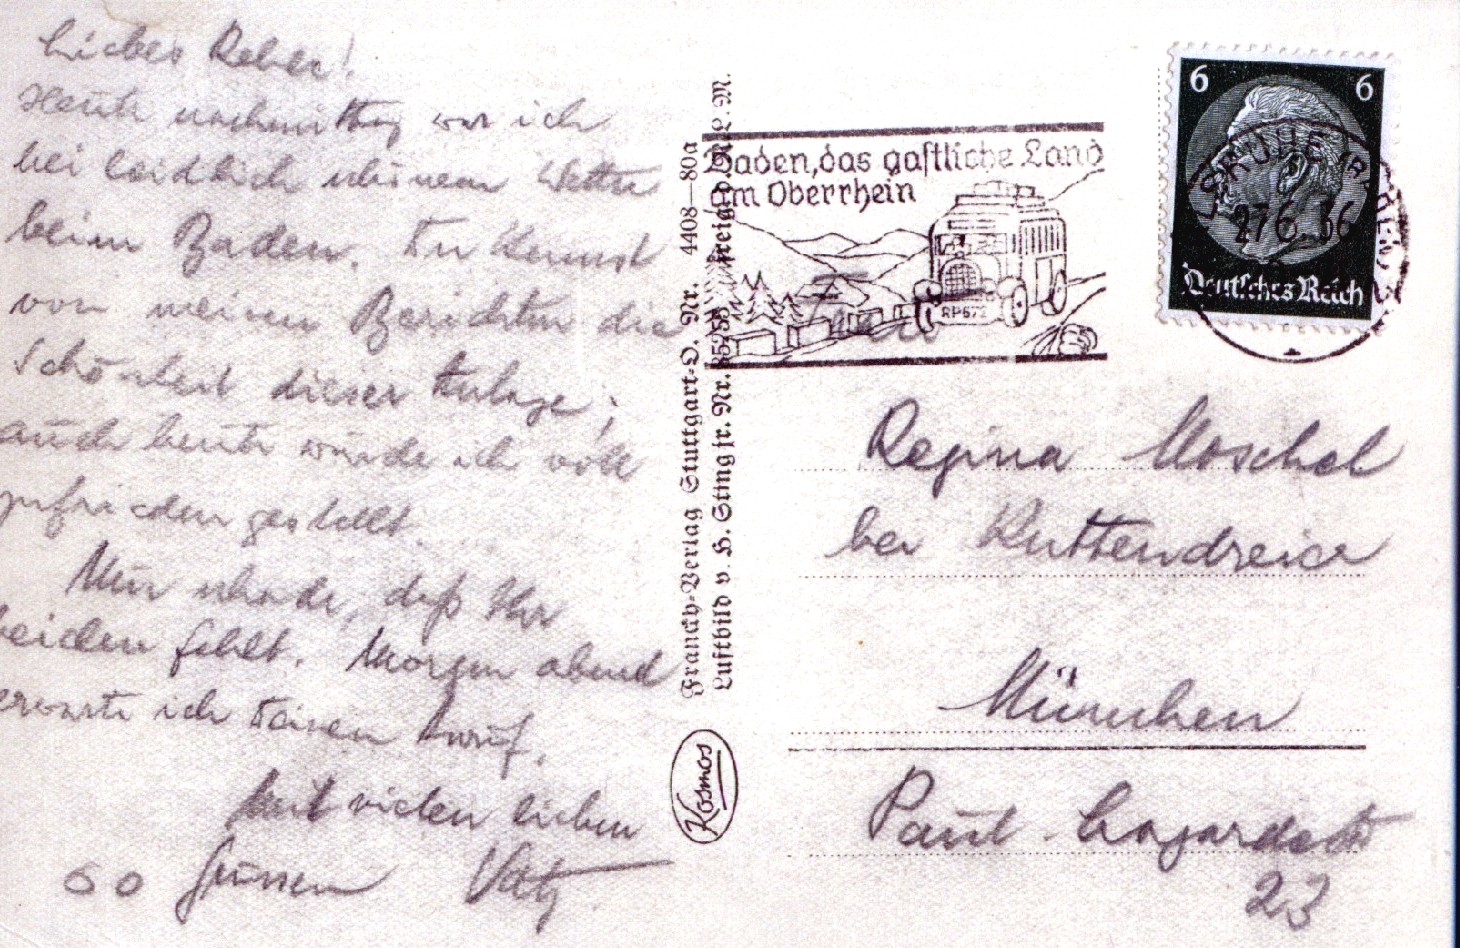 Liebes Reherl!
Heute nachmittag war ich
bei leidlich schönem Wetter
beim Baden. Du kennst
von meinen Berichten die
Schönheit dieser Anlage;
auch heute wurde ich voll
zufrieden gestellt.
Nur schade, daß Ihr
beiden fehlt. Morgen abend
erwarte ich Deinen Anruf.
Mit vielen lieben
Grüssen
Franckh-Verlag Stuttgart-O. Nr. 4408—80a
Luftbild v. H. Sting fr. Nr.
Kosmos
Baden, das gastliche Land
am Oberrhein
RP672
6 6
Deutsches Reich
KARLSRUHE
27.6.36
Frau
Regina Moschel
bei
München
Paul Lagardestr
23